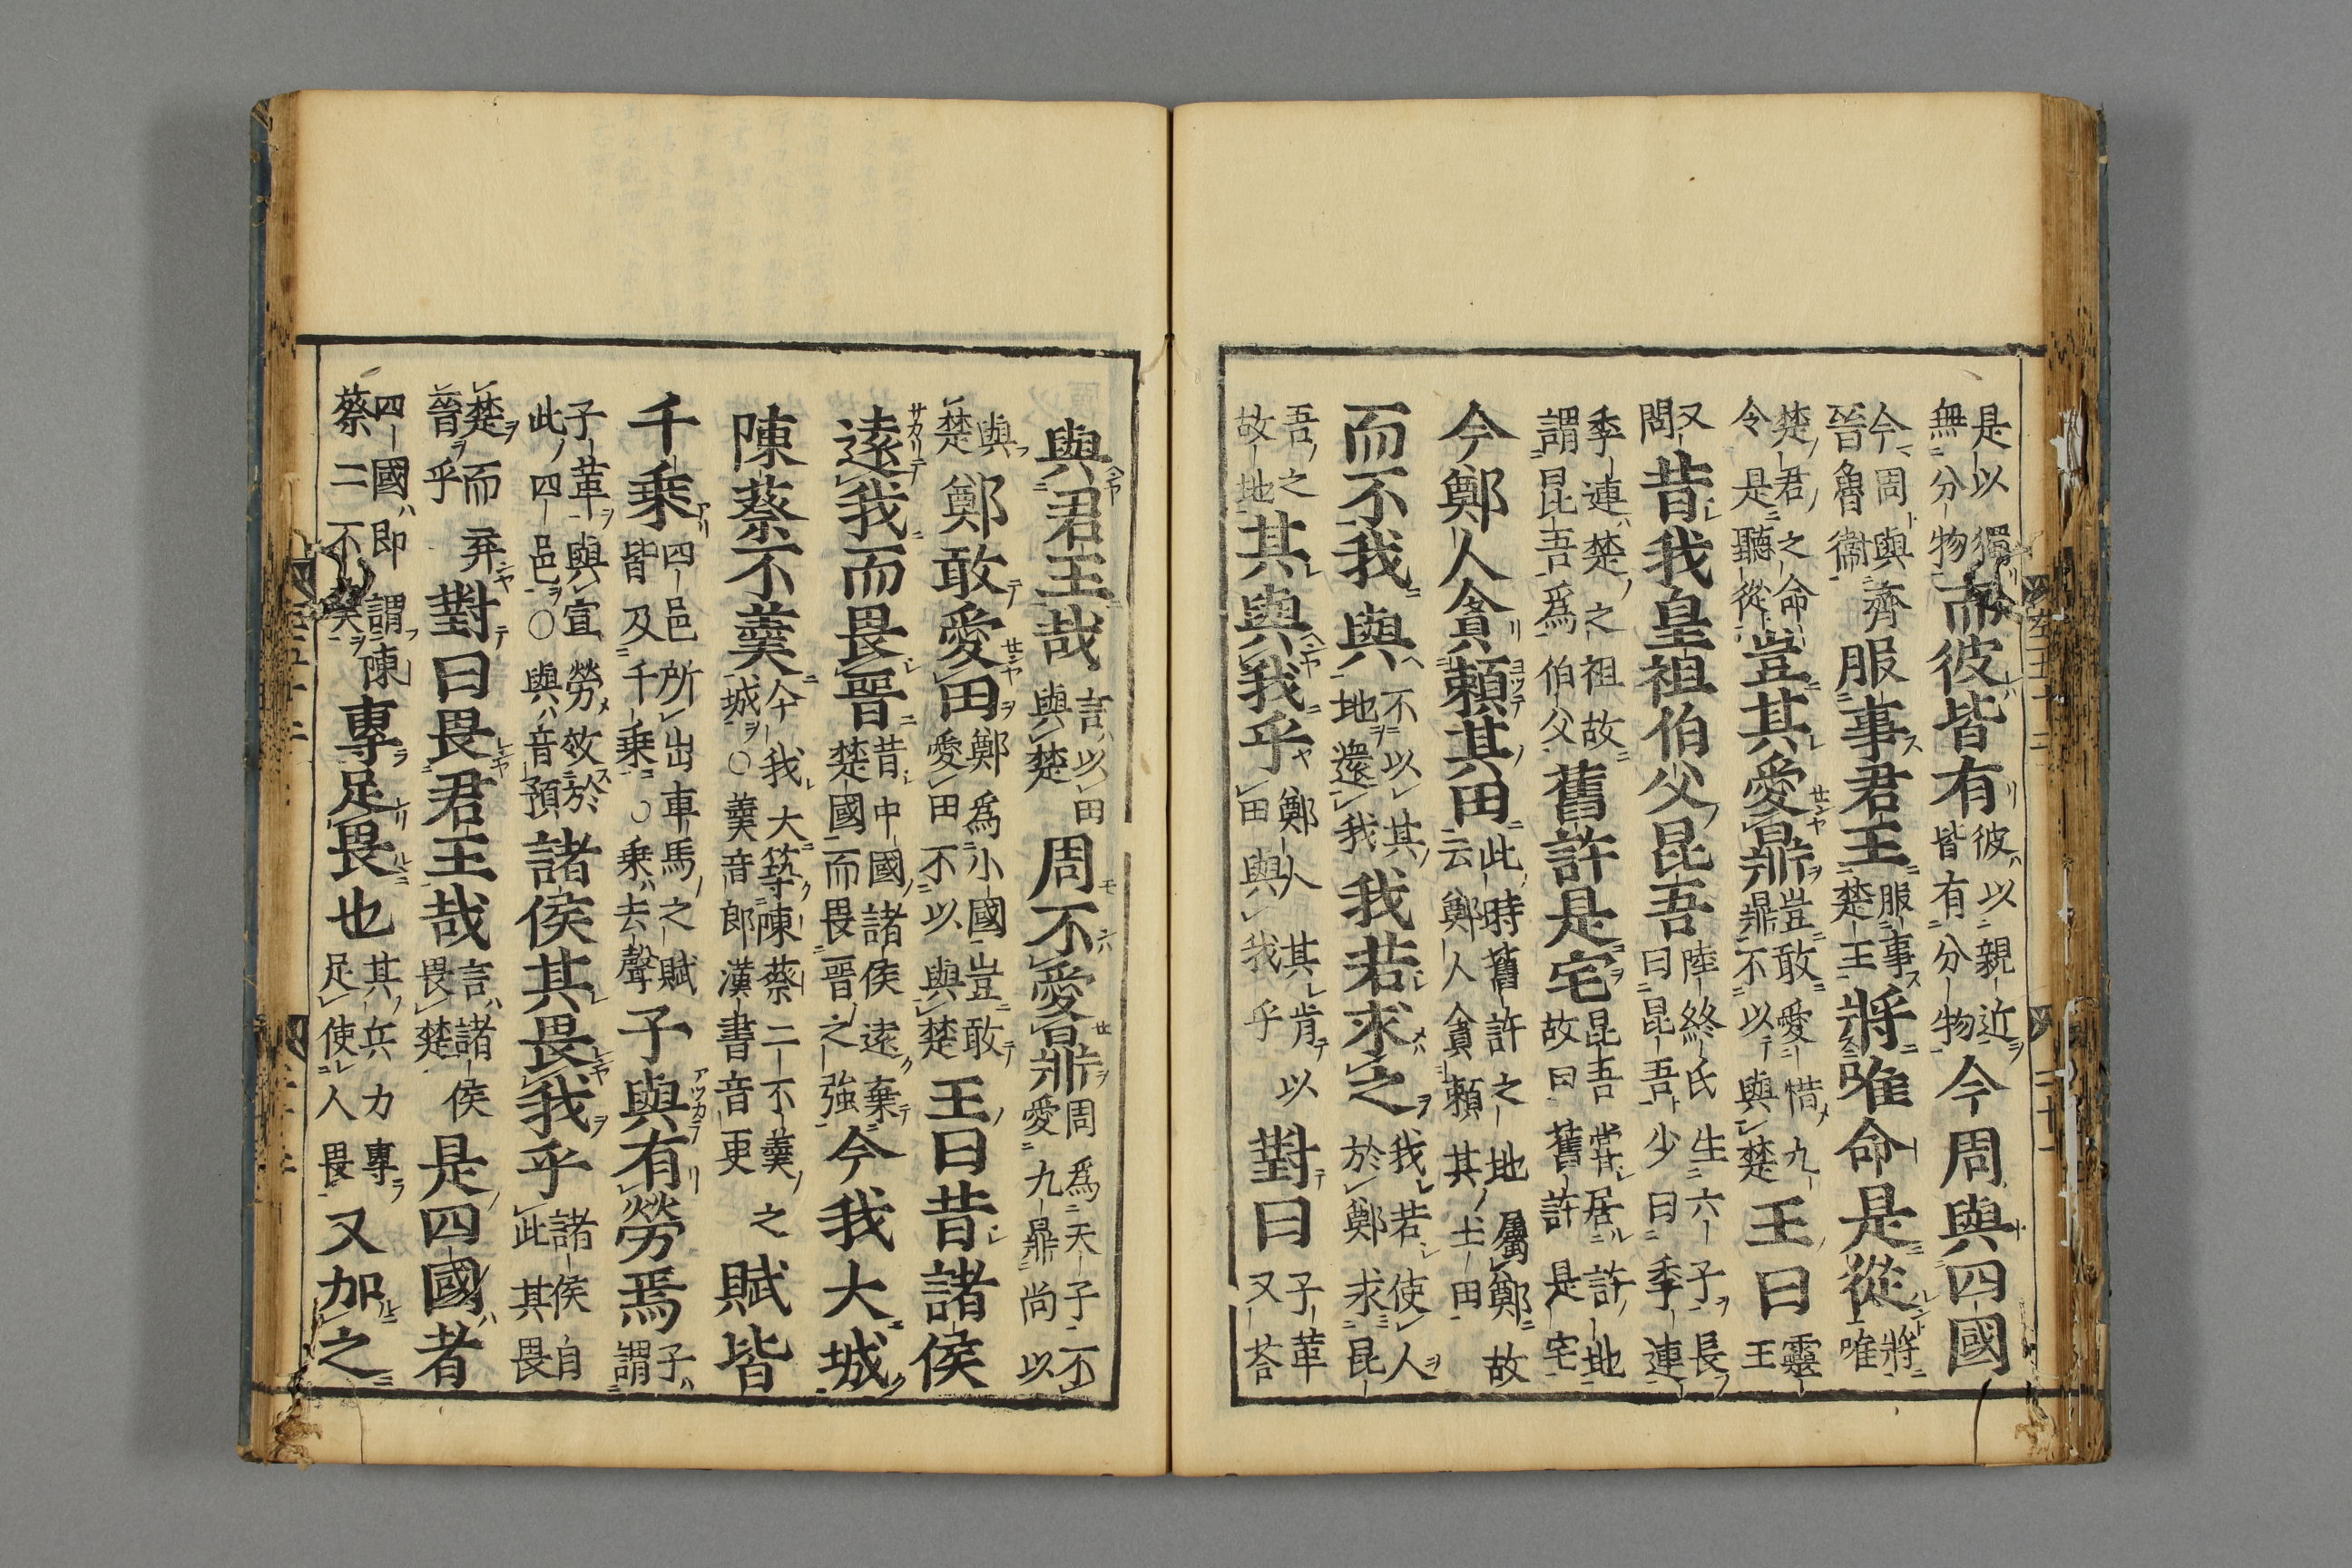 是以獨無分物而彼皆有彼以親近皆有分物今周與四國
今周與齊晉魯衞服事君王服事楚王將唯命是從將唯
楚君之命令是聽從豈其愛鼎豈敢愛惜九鼎不以與楚王曰靈王
又問昔我皇祖伯父昆吾陸終氏生六子長曰昆吾少曰季連
季連楚之祖故謂昆吾爲伯父舊許是宅昆吾嘗居許地故曰舊許是宅
今鄭人貪賴其田此時舊許之地屬鄭故云鄭人貪賴其土田
而不我與不以其地還我我若求之我若使人於鄭求昆
吾之故地其與我乎鄭人其肯以田與我乎對曰子革又荅
與君王哉言以田與楚周不愛鼎周爲天子不愛九鼎尚以
與楚鄭敢愛田鄭爲小國豈敢愛田不以與楚王曰昔諸侯
遠我而畏晉昔中國諸侯遠棄楚國而畏晉之強今我大城
陳蔡不羹今我大築陳蔡二不羹之城○羹音郎漢書音更賦皆
千乘四邑所出車馬之賦皆及千乘○乘去聲子與有勞焉子謂
子革與宣勞效於此四邑○與音預諸侯其畏我乎諸侯自此其畏
楚而弃晉乎對曰畏君王哉言諸侯畏楚是四國者
四國即謂陳蔡二不羹專足畏也其兵力專足使人畏又加之